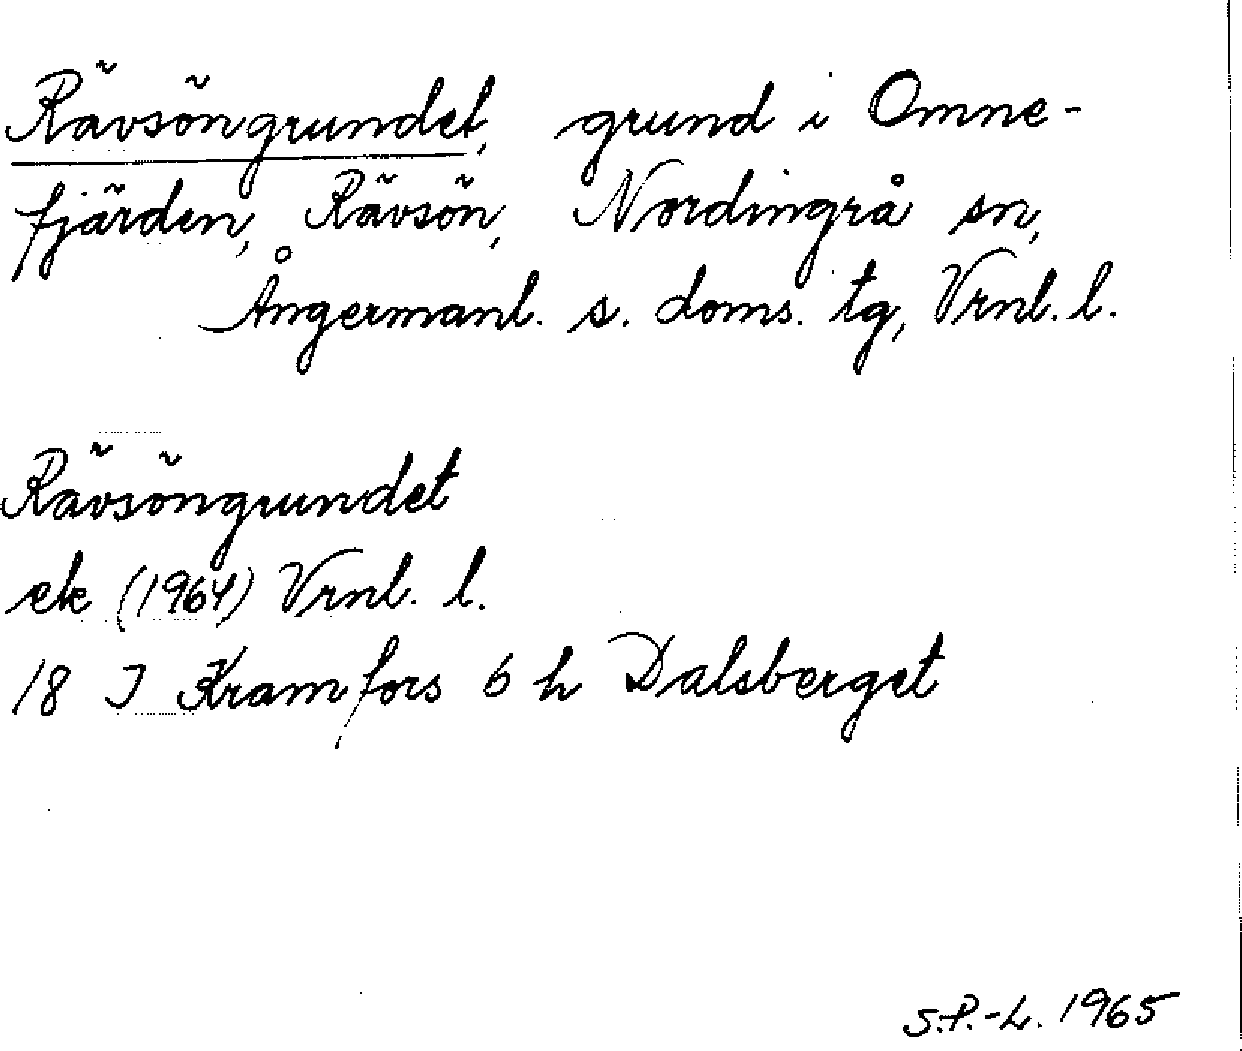 Rävsöngrundet, grund i Omne-
fjärden, Rävsön, Nordingrå sn,
Ångermanl. s. doms. tg, Vrnl. l.
Rävsöngrundet
ek (1964) Vrnl. l.
18 J Kramfors 6 h Dalsberget
S.P.-L. 1965